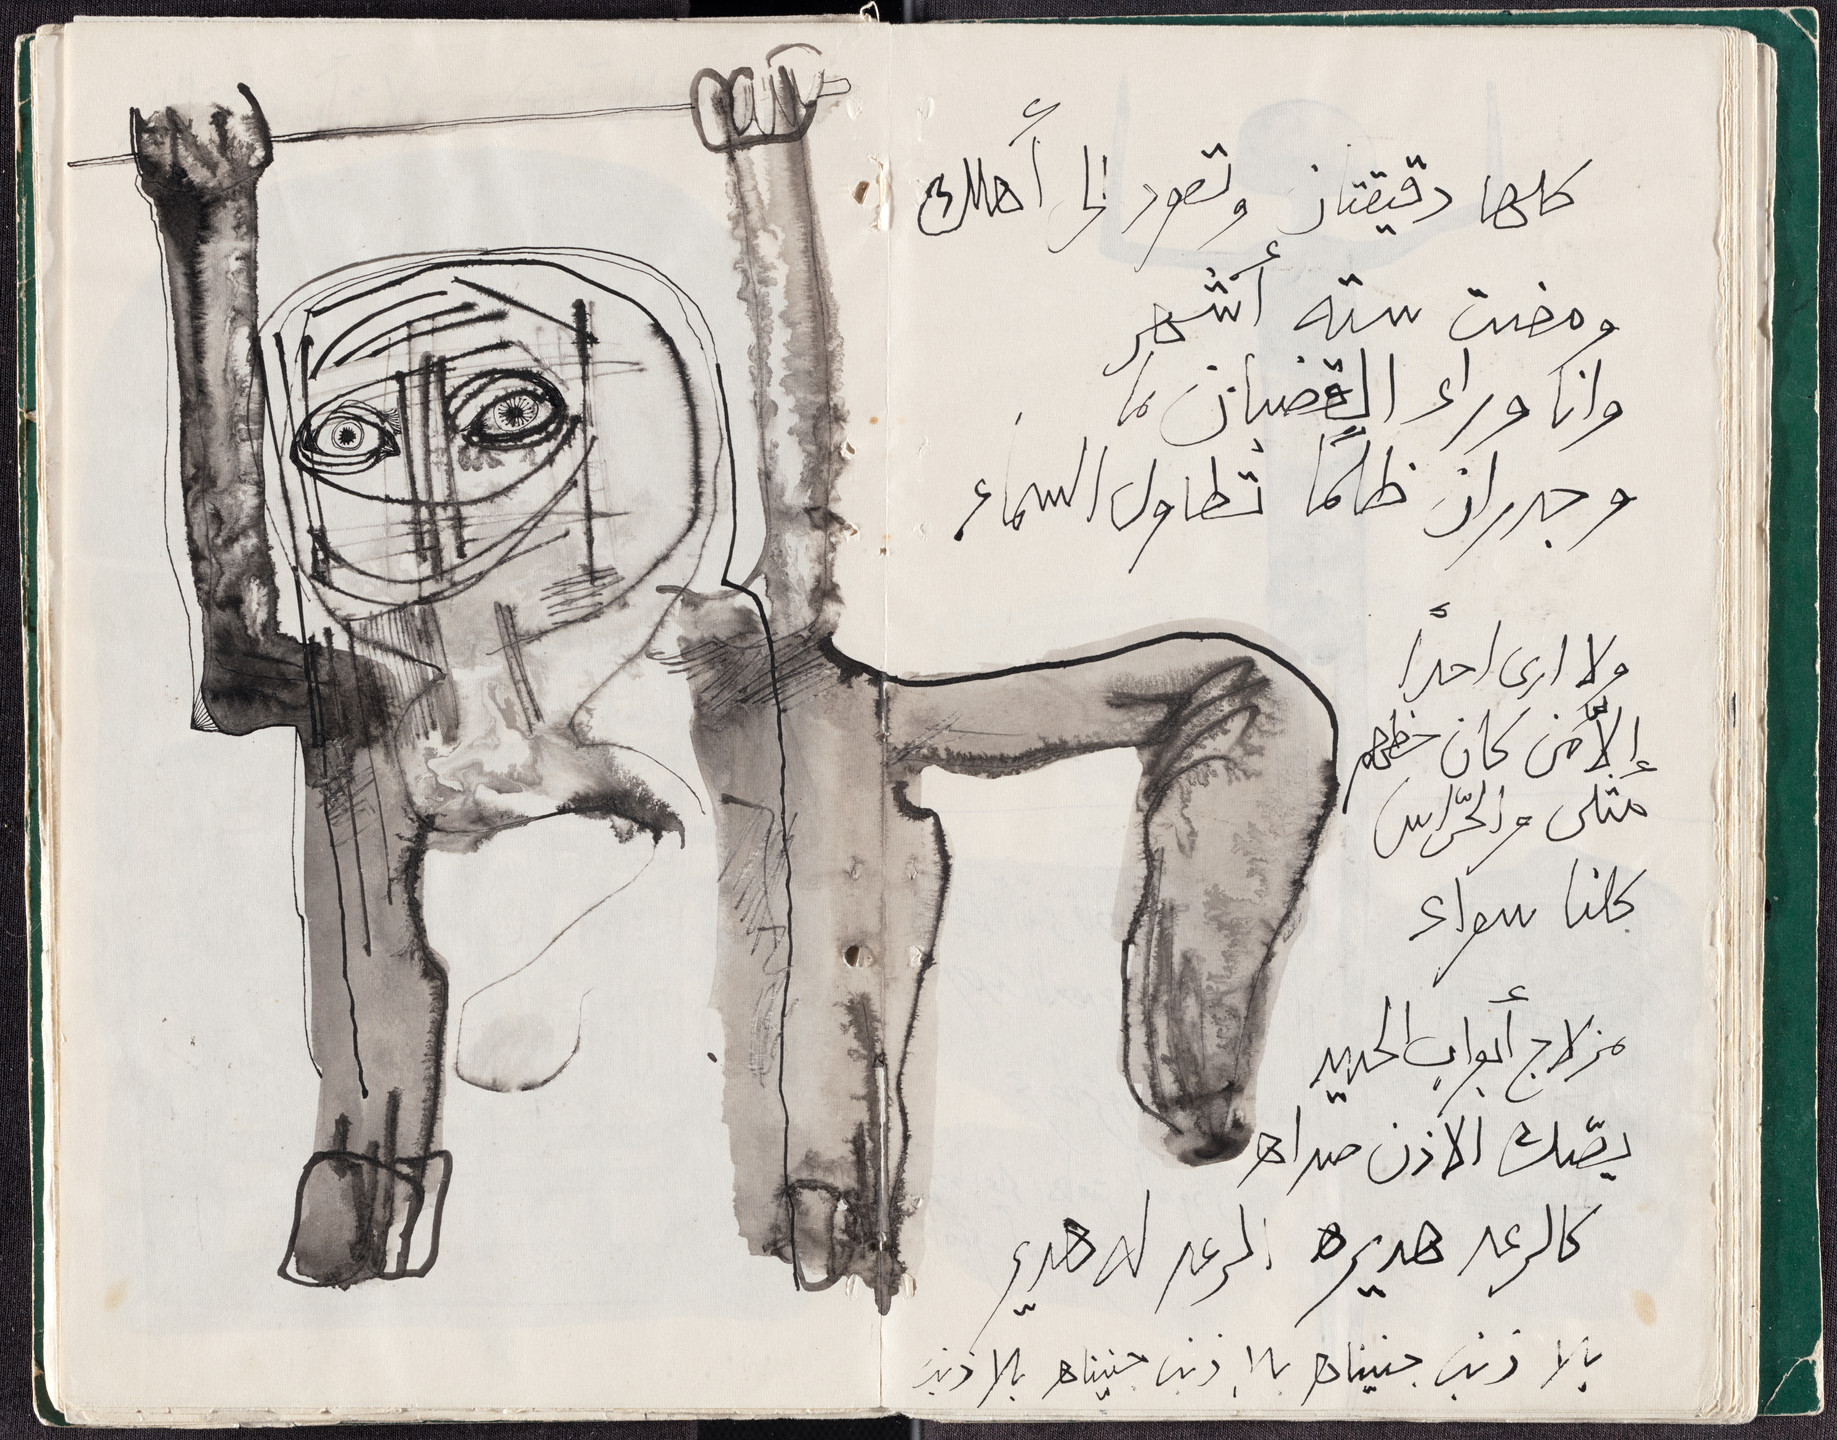 كلها دقيقتان وتعود إلى أهلك
ومضت سته أشهر
وانا وراء القضبان ما
وجدران ظلمًا تطاول السماء
ولا ارى احدًا
إلاّ من كان حظهم
مثلي والحرّاس
كلنا سواء
مزلاج أبواب الحديد
يصّك الاذن صداه
كالرعد هديره الرعد له هدير
بلا ذنب جنيناه بلا ذنب جنيناه بلا ذنب